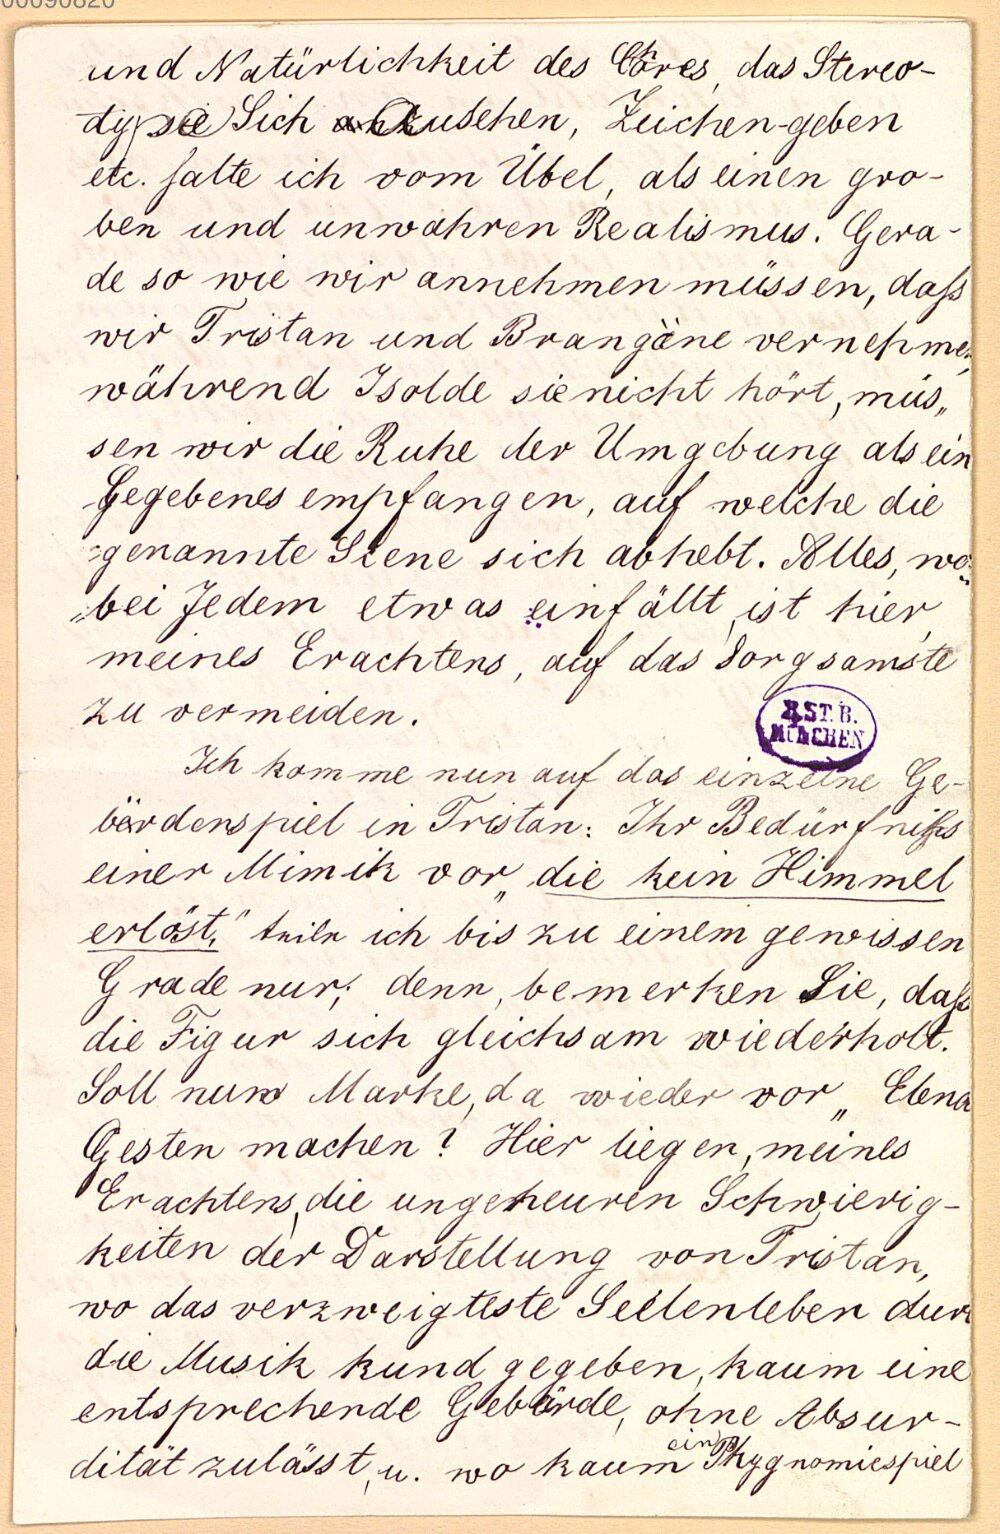 00090820
und Natürlichkeit des Chores, das Stereo-
dype Sich anzusehen, Zeichen-geben
etc. halte ich vom Übel, als einen gro-
ben und unwahren Realismus. Gera-
de so wie wir annehmen müssen, daß
wir Tristan und Brangäne vernehmen,
während Isolde sie nicht hört, müs„
sen wir die Ruhe der Umgebung als ein
Gegebenes empfangen, auf welche die
genannte Scene sich abhebt. Alles, wo„
„bei Jedem etwas einfällt, ist hier,
meines Erachtens, auf das Sorgsamste
zu vermeiden.
K. ST. B.
MÜNCHEN
Ich komme nun auf das einzelne Ge-
bärdenspiel in Tristan: Ihr Bedürfniss
einer Mimik vor „die kein Himmel
erlöst," teile ich bis zu einem gewissen
Grade nur; denn, bemerken Sie, daß
die Figur sich gleichsam wiederholt.
Soll nun Marke, da wieder vor „Elend
Gesten machen? Hier liegen, meines
Erachtens, die ungeheuren Schwierig-
keiten der Darstellung von Tristan,
wo das verzweigteste Seelenleben durch
die Musik kund gegeben, kaum eine
entsprechende Gebärde, ohne Absur-
dität zulässt, u. wo kaum ein Phygnomiespiel